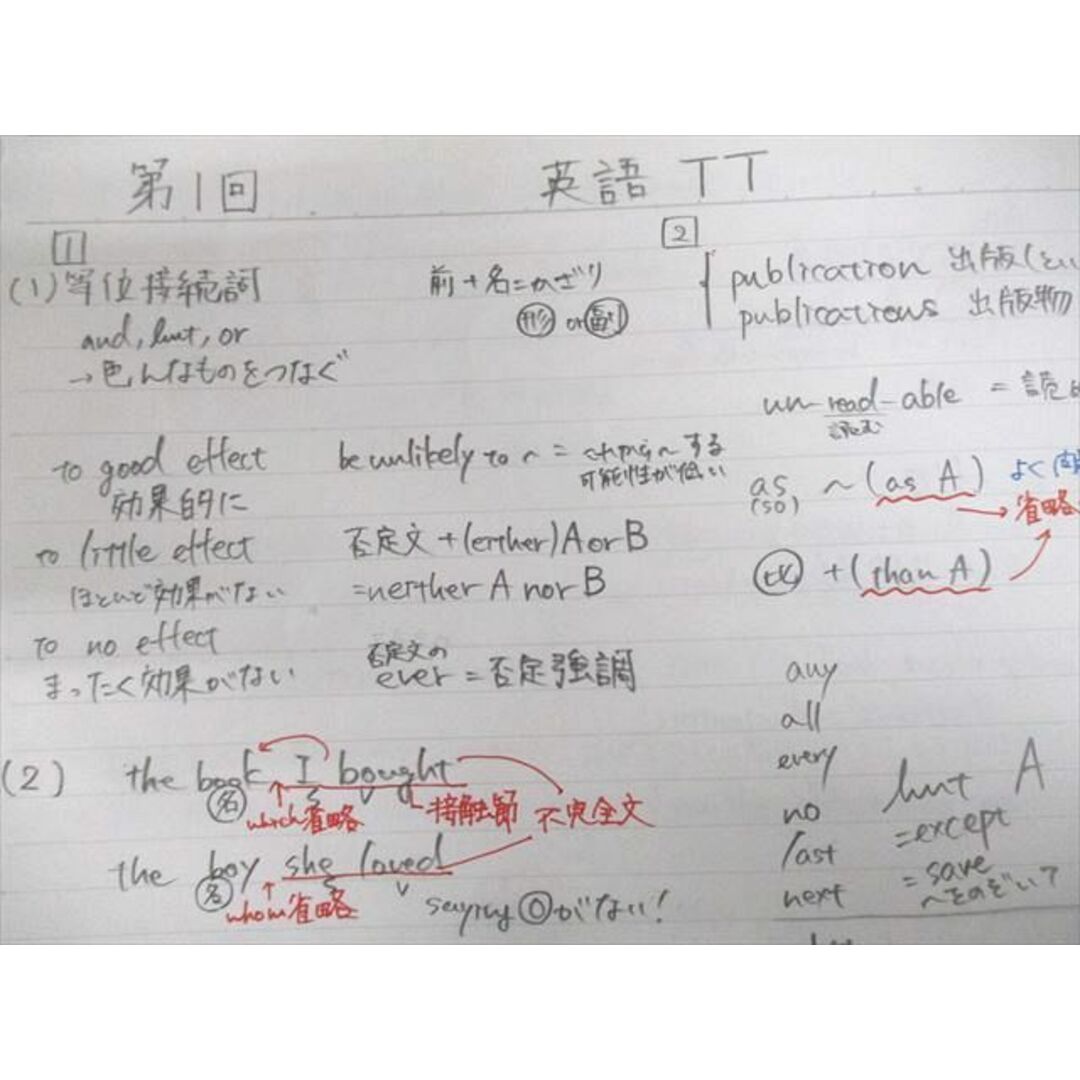 第1回 英語 TT
1
(1) 等位接続詞
and, but, or
→色んなものをつなぐ
前+名=かざり
形 or 副
to good effect
効果的に
to little effect
ほとんど効果がない
to no effect
まったく効果がない
be unlikely to ~ = ~する
可能性が低い
否定文+(either)A or B
=neither A nor B
否定文の
ever = 否定強調
(2) the book I bought
名 which省略 S V 接触節 不完全文
the boy she loved
名 whom省略 S V
saying Ⓞがない!
2
publication 出版(とい
publications 出版物
un-read-able = 読め
読む
as ~ (as A) よく
(so) → 省略
比 + (than A)
any
all
every
no
last
next
but A
=except
=save
~をのぞいて